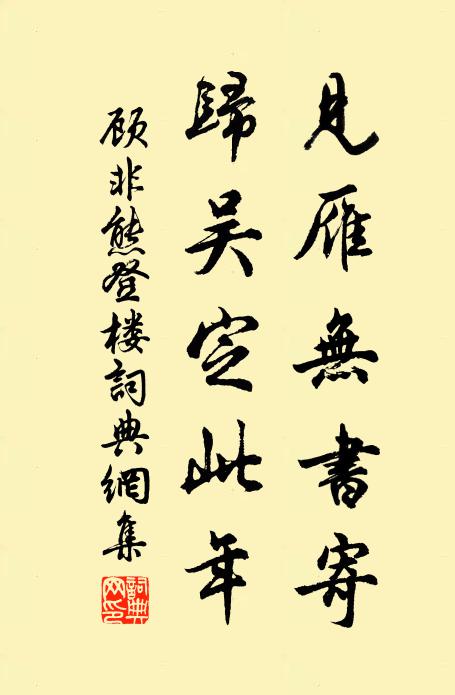 見雁無書寄
歸吴定此年
顾非熊登楼詞典網集
詞典網印